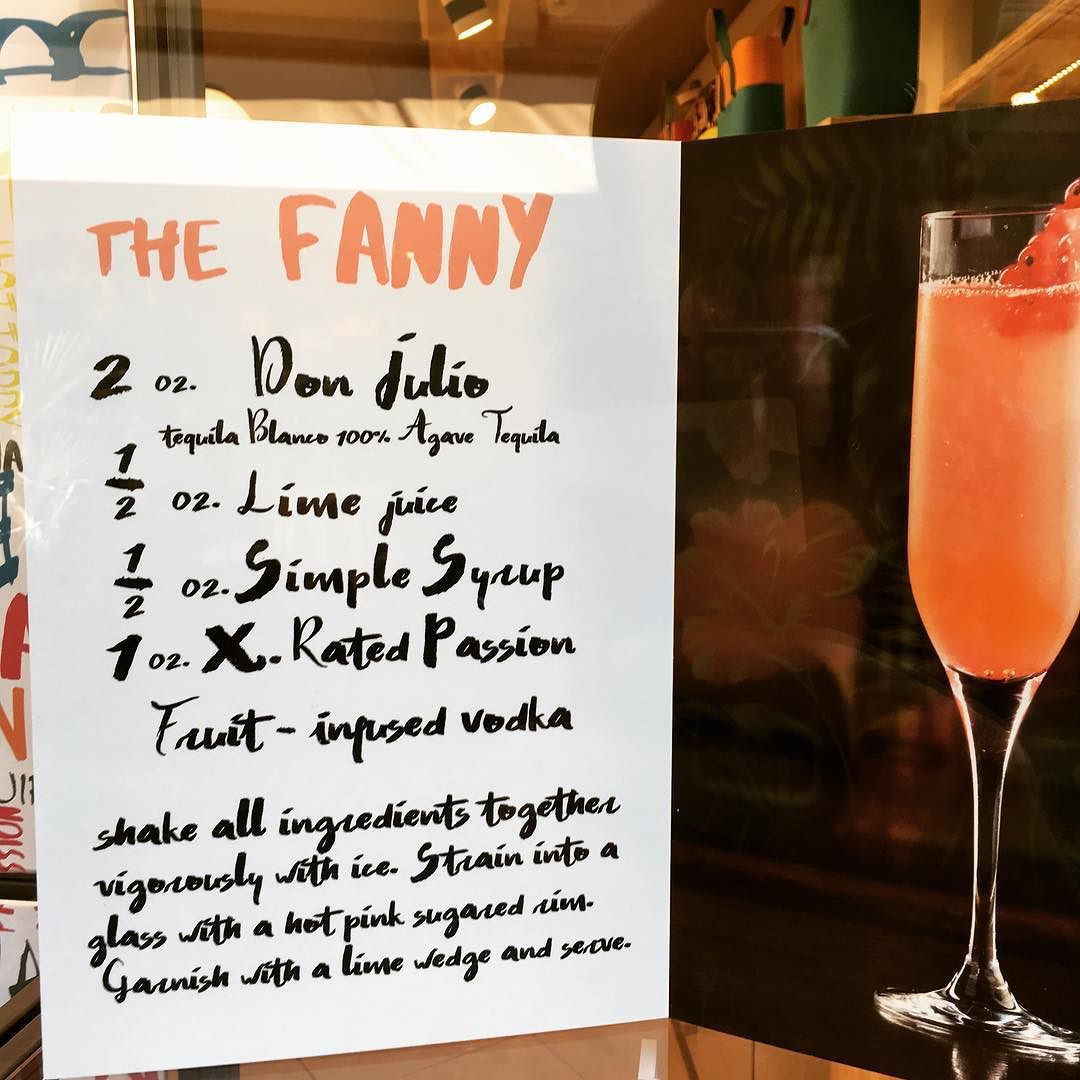 THE FANNY
2 oz. Don Julio
tequila Blanco 100% Agave Tequila
1/2 oz. Lime juice
1/2 oz. Simple Syrup
1 oz. X. Rated Passion
Fruit - infused vodka
shake all ingredients together
vigorously with ice. Strain into a
glass with a hot pink sugared rim.
Garnish with a lime wedge and serve.